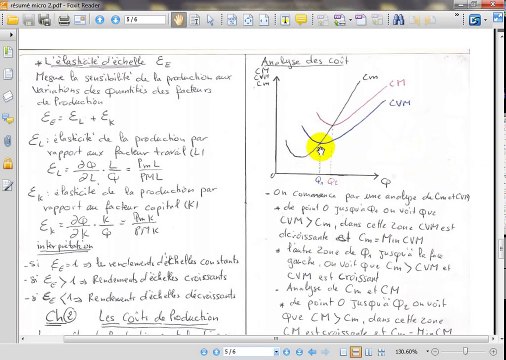 résumé micro 2.pdf - Foxit Reader
5 / 6
* L'élasticité d'échelle ℰE
Mesure la sensibilité de la production aux
variations des quantités des facteurs
de Production
ℰE = ℰL + ℰK
ℰL : élasticité de la production par
rapport aux facteur travail (L)
ℰL = ∂Q/∂L · L/Q = PmL/PML
ℰK : élasticité de la production par
rapport au facteur capital (K)
ℰK = ∂Q/∂K · K/Q = PmK/PMK
interprétation
- si ℰE = 1 ⇒ les rendements d'échelles constants
- si ℰE > 1 ⇒ Rendements d'échelles croissants
- si ℰE < 1 ⇒ Rendements d'échelles décroissants
Ch② Les Coûts de Production
Analyse des coût
CM
CVM
Cm
Cm
CM
CVM
Q₁ Q₂
Q
- On commence par une analyse de Cm et CVM
* de point 0 jusqu'à Q₁ on voit que
CVM > Cm, dans cette zone CVM est
décroissante et Cm = Min CVM
* l'autre zone de Q₁ jusqu'à
gauche. On voit que Cm > CVM et
CVM est croissant
- Analyse de Cm et CM
* de point 0 jusqu'à Q₂ on voit
que CM > Cm, dans cette zone
CM est croissante et Cm = Min CM
5 / 6
130.60%